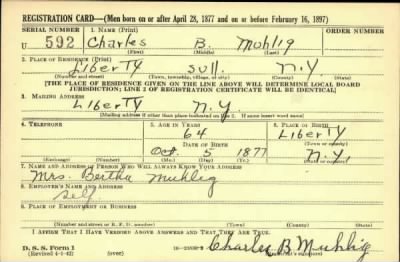 REGISTRATION CARD—(Men born on or after April 28, 1877 and on or before February 16, 1897)
SERIAL NUMBER 1. NAME (Print)
U 592 Charles B. Muhlig
(First) (Middle) (Last)
2. PLACE OF RESIDENCE (Print)
Liberty Sull. N.Y.
(Number and street) (Town, township, village, or city) (County) (State)
[THE PLACE OF RESIDENCE GIVEN ON THE LINE ABOVE WILL DETERMINE LOCAL BOARD
JURISDICTION; LINE 2 OF REGISTRATION CERTIFICATE WILL BE IDENTICAL]
3. MAILING ADDRESS
Liberty N.Y.
[Mailing address if other than place indicated on line 2. If same insert word same]
4. TELEPHONE 5. AGE IN YEARS 6. PLACE OF BIRTH
64 Liberty
DATE OF BIRTH (Town or county)
Oct. 5 1877 N.Y.
(Exchange) (Number) (Mo.) (Day) (Yr.) (State or country)
7. NAME AND ADDRESS OF PERSON WHO WILL ALWAYS KNOW YOUR ADDRESS
Mrs. Bertha Muhlig
8. EMPLOYER'S NAME AND ADDRESS
Self
9. PLACE OF EMPLOYMENT OR BUSINESS
(Number and street or R. F. D. number) (Town) (County) (State)
I AFFIRM THAT I HAVE VERIFIED ABOVE ANSWERS AND THAT THEY ARE TRUE.
D. S. S. Form 1
(Revised 4-1-42) (over) Charles B Muhlig